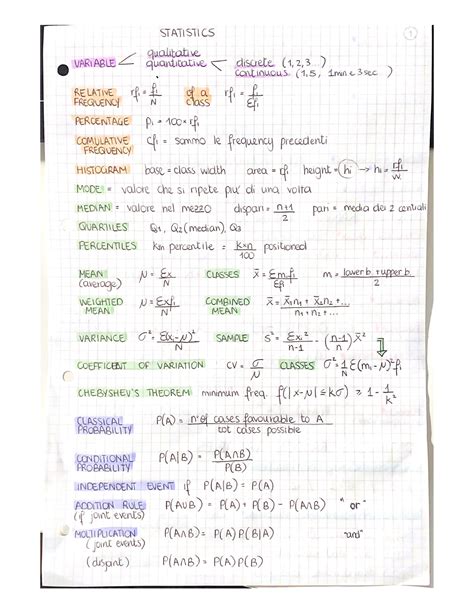 STATISTICS
1
VARIABLE < qualitative
quantitative < discrete (1,2,3...)
continuous (1,5, 1min e 3sec)
RELATIVE FREQUENCY rfi = fi/N of a class rfi = fi/Σfi
PERCENTAGE pi = 100×rfi
COMULATIVE FREQUENCY cfi = sommo le frequency precedenti
HISTOGRAM base = class width area = rfi height = hi → hi = rfi/w
MODE = valore che si ripete piu' di una volta
MEDIAN = valore nel mezzo dispari = n+1/2 pari = media dei 2 centrali
QUARTILES Q1, Q2 (median), Q3
PERCENTILES km percentile = k×n/100 positioned
MEAN (average) μ = Σx/N CLASSES x̄ = Σmifi/Σfi m = lower b. + upper b/2
WEIGHTED MEAN μ = Σxfi/N COMBINED MEAN x̄ = x̄1n1 + x̄2n2 + .../n1 + n2 + ...
VARIANCE σ² = Σ(xi-μ)²/N SAMPLE s² = Σxi²/n-1 - (n-1/n) x̄²
COEFFICENT OF VARIATION CV = σ/μ CLASSES σ² = 1/N Σ(mi-μ)² fi
CHEBYSHEV'S THEOREM minimum freq. f(|x-μ| ≤ kσ) ≥ 1 - 1/k²
CLASSICAL PROBABILITY P(A) = n° of cases favourable to A/tot cases possible
CONDITIONAL PROBABILITY P(A|B) = P(A∩B)/P(B)
INDEPENDENT EVENT if P(A|B) = P(A)
ADDITION RULE P(A∪B) = P(A) + P(B) - P(A∩B) "or"
(if joint events)
MULTIPLICATION P(A∩B) = P(A) P(B|A) "and"
(joint events)
(disjoint) P(A∩B) = P(A) P(B)